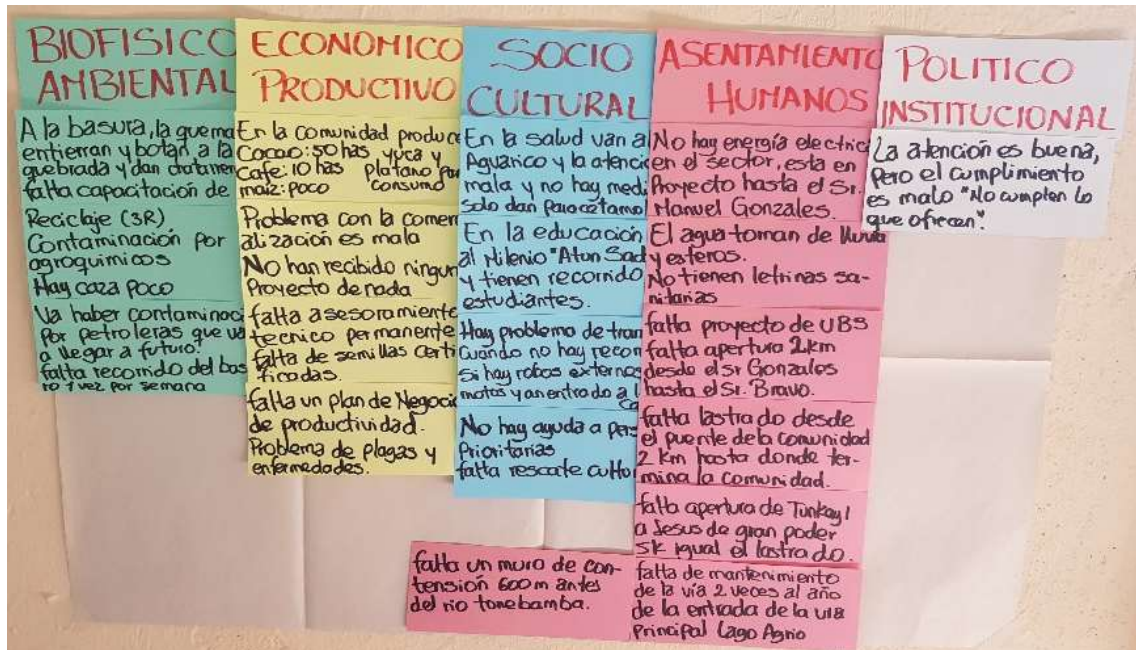 BIOFISICO
AMBIENTAL
A la basura, la quema
entierran y botan a la
quebrada y dan
falta capacitación de
Reciclaje (3R)
Contaminación por
agroquimicos
Hay caza poco
Va haber contaminaci
Por petroleras que va
a llegar a futuro.
falta recorrido del bas
ro 1 vez por semana
ECONOMICO
PRODUCTIVO
En la comunidad produce
Cacao: 50 has yuca y
Cafe: 10 has platano para
maiz: poco consumo
Problema con la comer
alización es mala
No han recibido ningun
Proyecto de nada
falta asesoramiento
tecnico permanente
falta de semillas certi
ficadas.
falta un plan de Negocio
de productividad.
Problema de plagas y
enfermedades.
SOCIO
CULTURAL
En la salud van al
Aguarico y la atencio
mala y no hay medi
solo dan paracetamol
En la educación
al Milenio "Atun Sad
y tienen recorrido
estudiantes.
Hay problema de tran
Cuando no hay recorr
Si hay robos externos
motos y an entrado a l
Ca
No hay ayuda a pers
Prioritarias
falta rescate cultur
ASENTAMIENTO
HUMANOS
No hay energía electric
en el sector, esta en
Proyecto hasta el Sr.
Manuel Gonzales.
El agua toman de lluvia
y esteros.
No tienen letrinas sa-
nitarias
falta proyecto de UBS
falta apertura 2km
desde el Sr Gonzales
hasta el Sr. Bravo.
falta lastrado desde
el puente de la comunidad
2 km hasta donde ter-
mina la comunidad.
falta apertura de Tunkay 1
a Jesus de gran poder
5k igual el lastrado.
falta de mantenimiento
de la vía 2 veces al año
de la entrada de la via
Principal Lago Agrio
falta un muro de con-
tensión 600m antes
del rio tonebamba.
POLITICO
INSTITUCIONAL
La atención es buena,
pero el cumplimiento
es malo "No cumplen lo
que ofrecen".